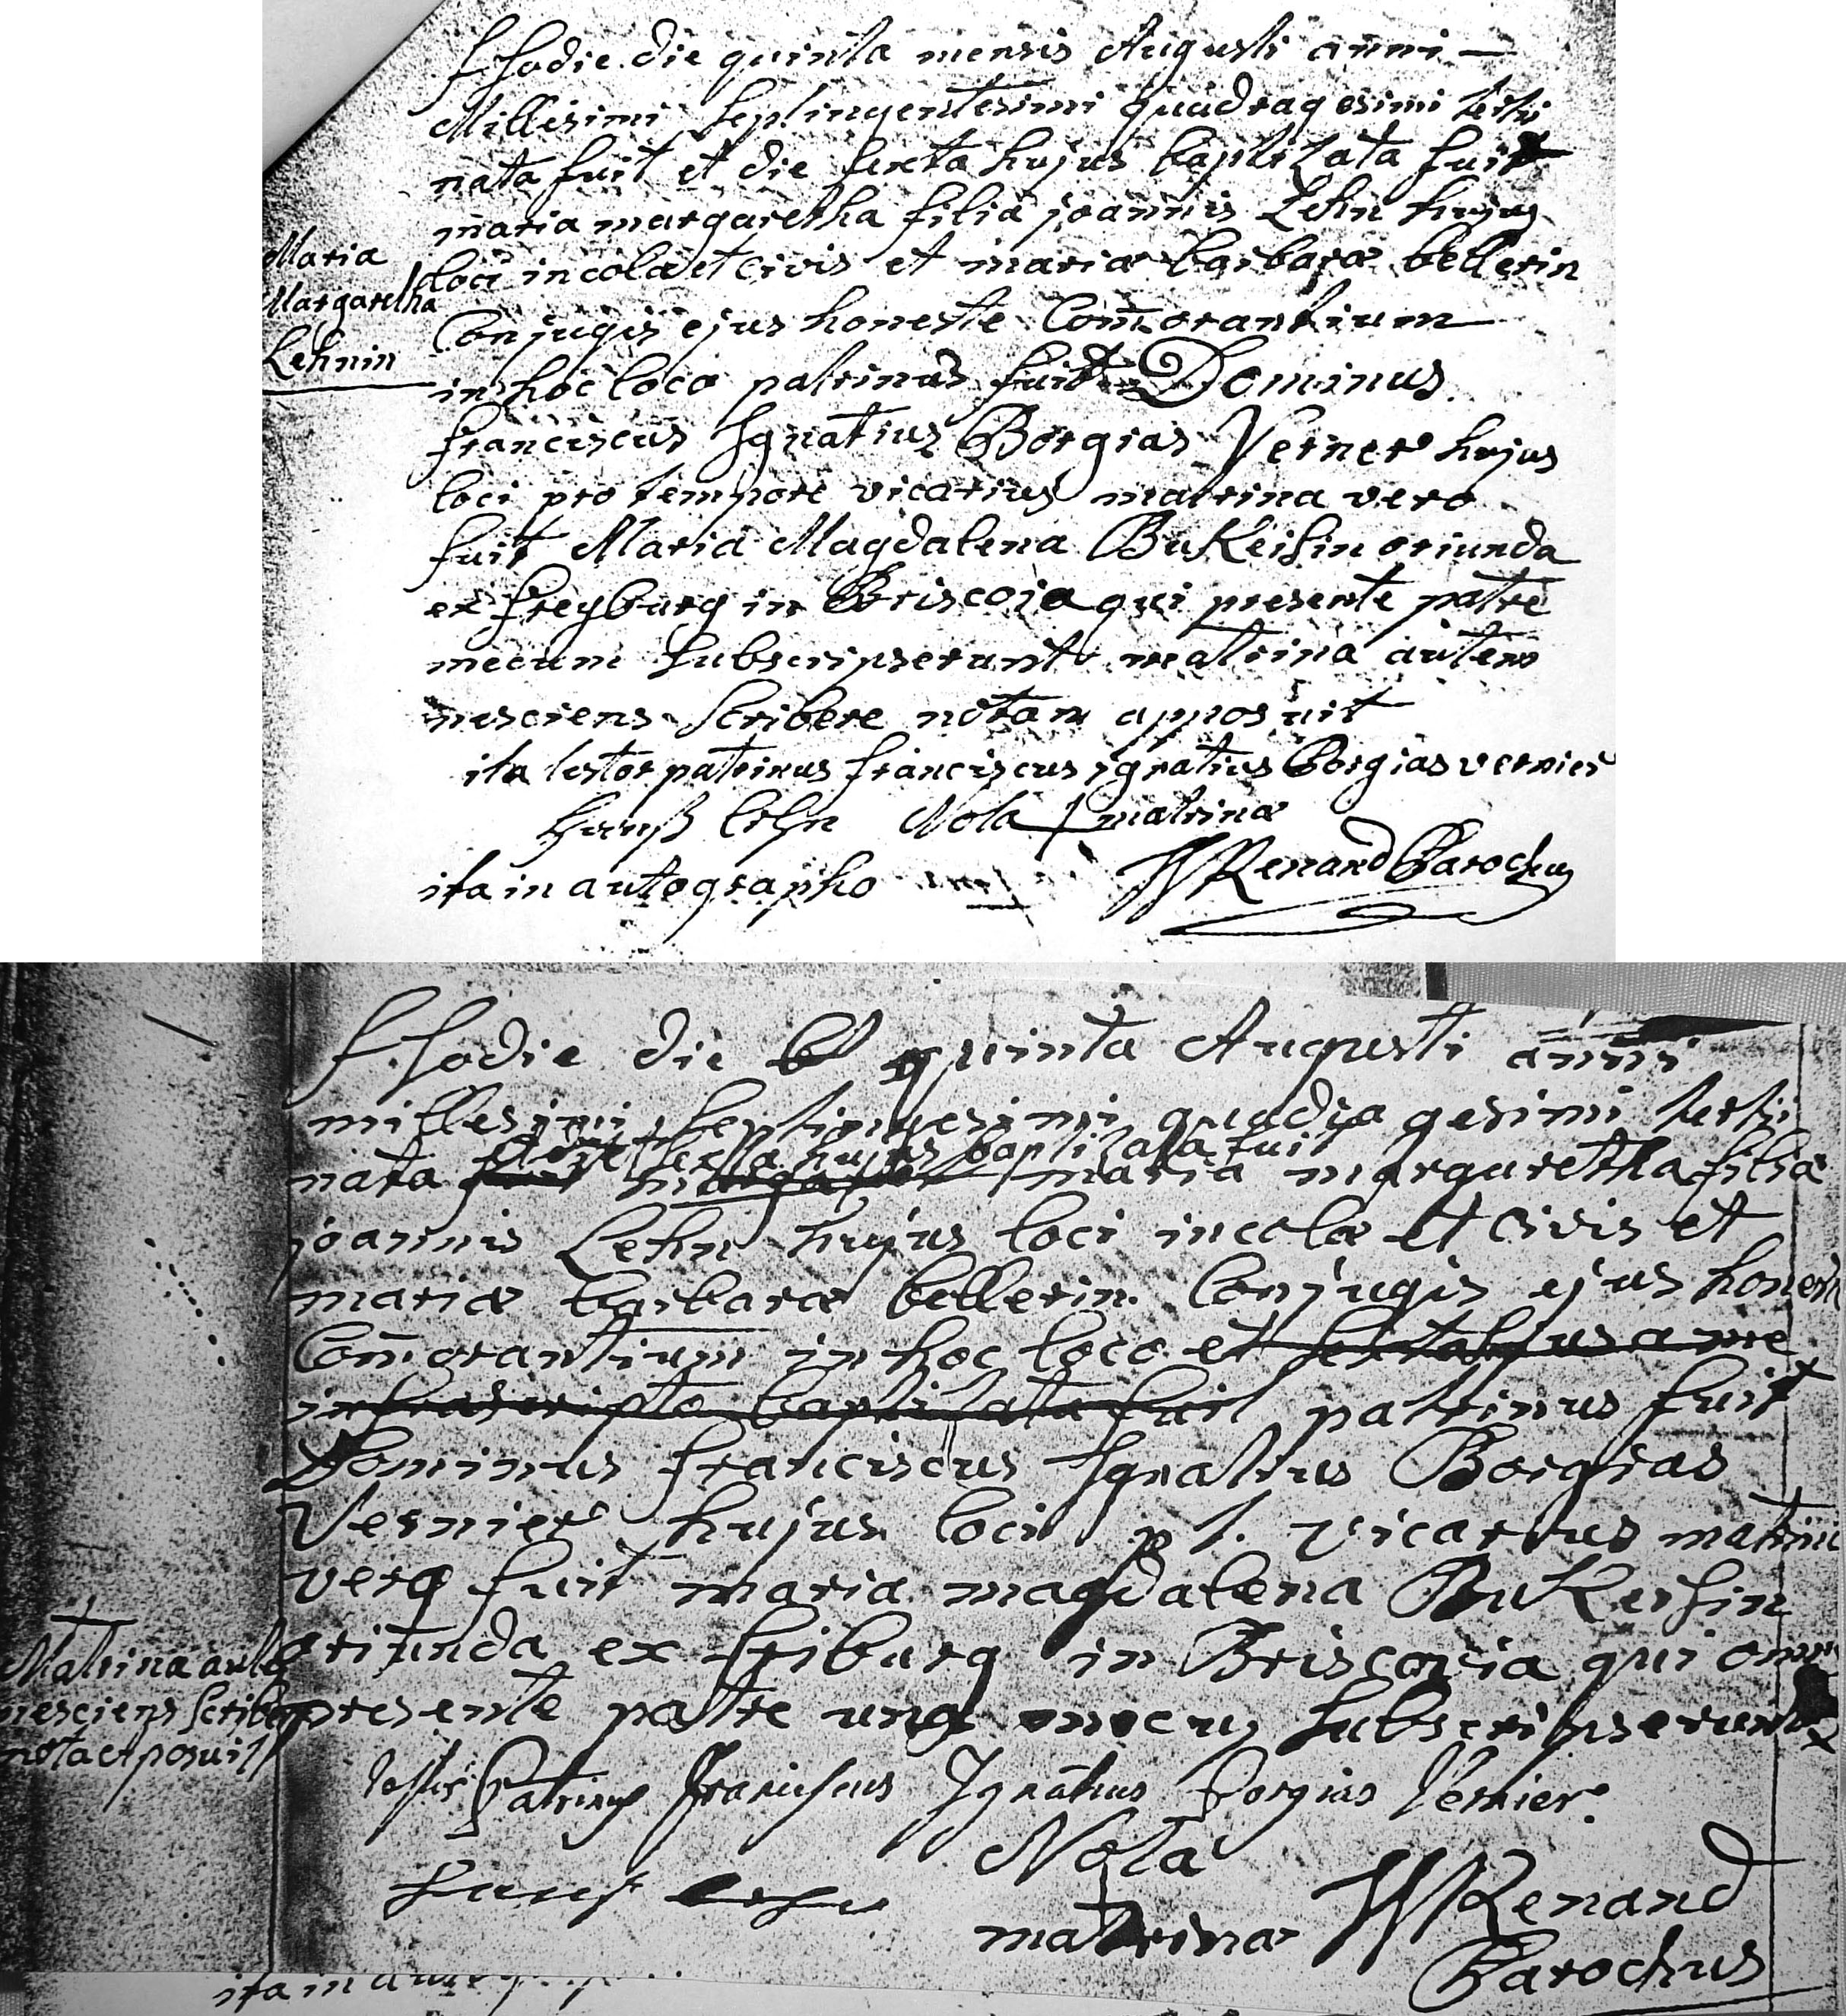 Hodie die quinta mensis Augusti anni —
Millesimi septingentesimi quadragesimi tertii
nata fuit et die sexta hujus baptizata fuit
maria margaretha filia joannis Lehn hujus
loci incolæ et civis et mariæ barbaræ bellerin
Conjugis ejus honeste Com̄orantium
in hoc loco patrinus fuit Dominus
franciscus Ignatius Borgias Verner hujus
loci pro tempore vicarius matrina vero
fuit Maria Magdalena BuKeisin oriunda
ex freyburg in Briscoia qui presente patre
mecum subscripserunt matrina autem
nesciens scribere notam apposuit
ita testor patrinus franciscus ignatius Borgias vernier
Hanß Lehn Nota + matrinæ
ita in autographo
Renand Parochus
Maria
Margaretha
Lehnin
Hodie die quinta Augusti anni
millesimi septingesimi quadragesimi tertii
die sexta hujus baptizata fuit
nata maria margaretha filia
joannis Lehn hujus loci incolæ et civis et
mariæ barbaræ bellerin Conjugis ejus honeste
Com̄orantium in hoc loco et sexta hujus a me
infrascripto baptizata fuit patrinus fuit
Dominus franciscus Ignatius Borgias
Vernier hujus loci p t. vicarius matrina
vero fuit maria magdalena BuKeisin
oriunda ex friburg in Briscovia qui
presente patre una mecum subscripserunt
Matrina aute
nesciens scribe
nota apposuit
Patrinus Franciscus Ignatius Borgias Vernier
Nota
+
matrinæ
Hanß Lehn
Renand
Parochus
ita in